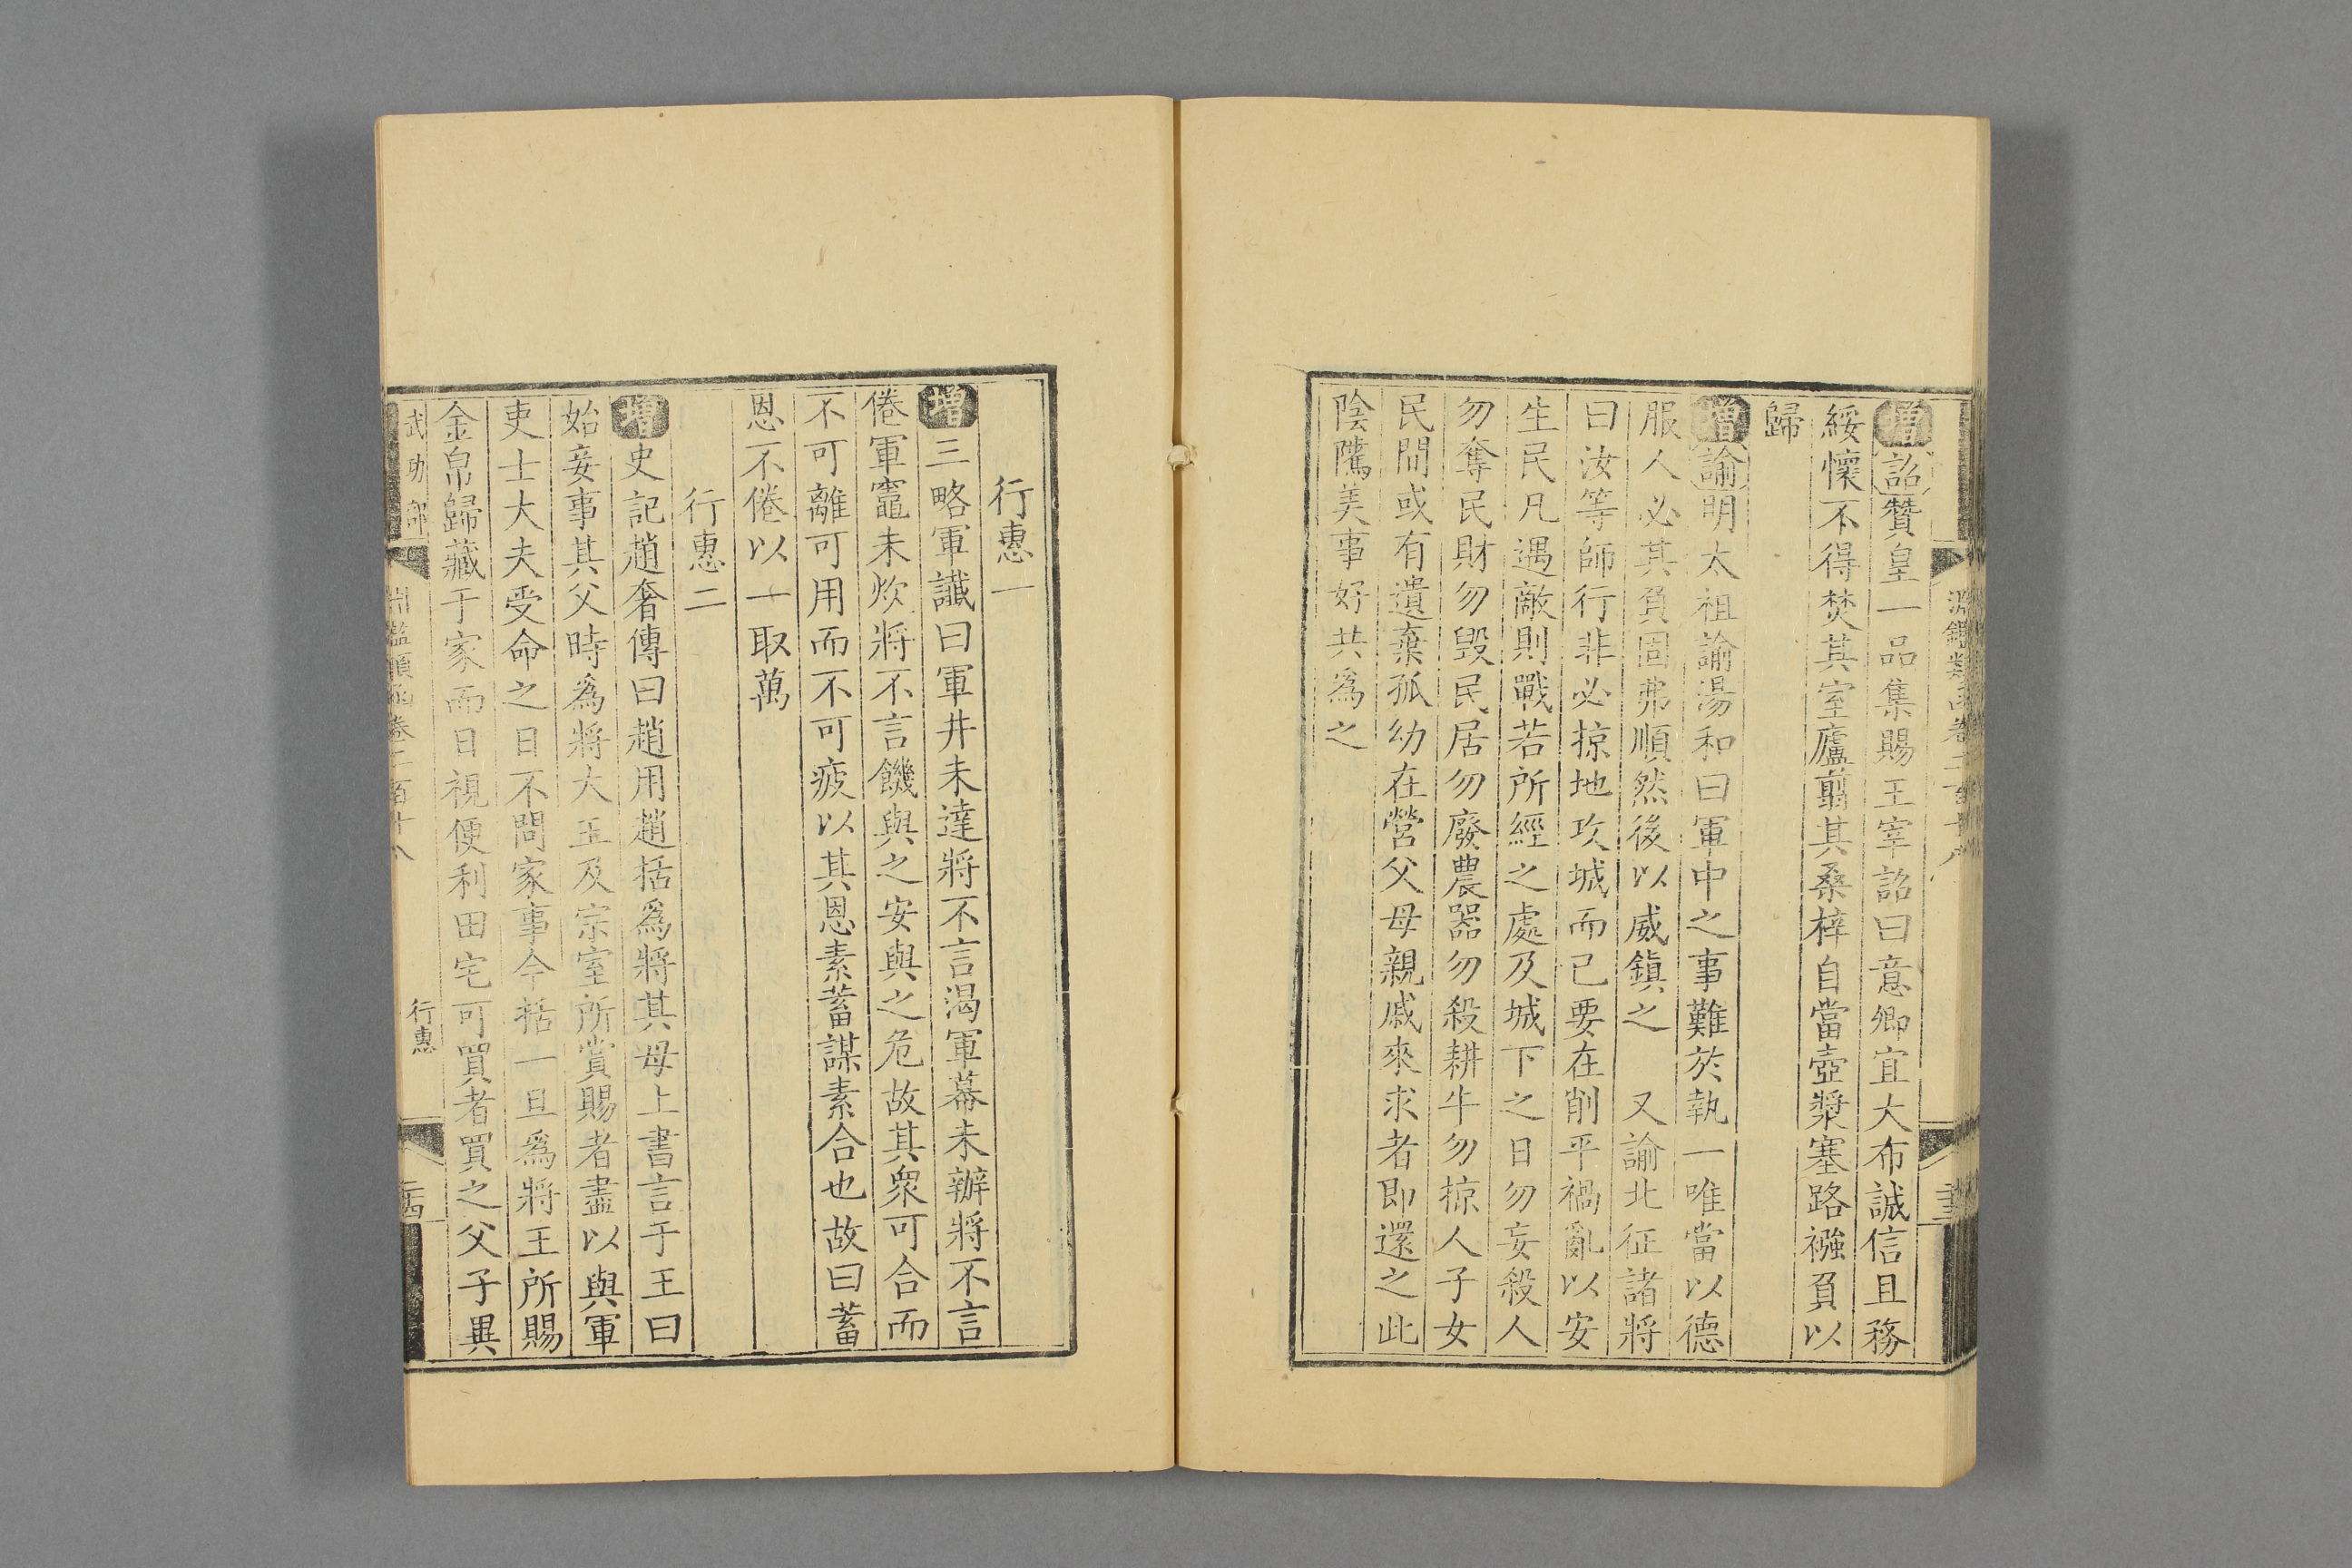 淵鑑類函卷二百十八
增詔贊皇一品集賜王宰詔曰意卿宜大布誠信且務
綏懷不得焚其室廬翦其桑梓自當壺漿塞路襁負以
歸
增諭明太祖諭湯和曰軍中之事難於執一唯當以德
服人必其負固弗順然後以威鎮之　又諭北征諸將
曰汝等師行非必掠地攻城而已要在削平禍亂以安
生民凡遇敵則戰若所經之處及城下之日勿妄殺人
勿奪民財勿毀民居勿廢農器勿殺耕牛勿掠人子女
民間或有遺棄孤幼在營父母親戚來求者即還之此
陰隲美事好共為之
行惠一
增三略軍讖曰軍井未達將不言渴軍幕未辦將不言
倦軍竈未炊將不言饑與之安與之危故其衆可合而
不可離可用而不可疲以其恩素蓄謀素合也故曰蓄
恩不倦以一取萬
行惠二
增史記趙奢傳曰趙用趙括為將其母上書言于王曰
始妾事其父時為將大王及宗室所賞賜者盡以與軍
吏士大夫受命之日不問家事今括一旦為將王所賜
金帛歸藏于家而日視便利田宅可買者買之父子異
武功部　淵鑑類函卷二百十八　行惠